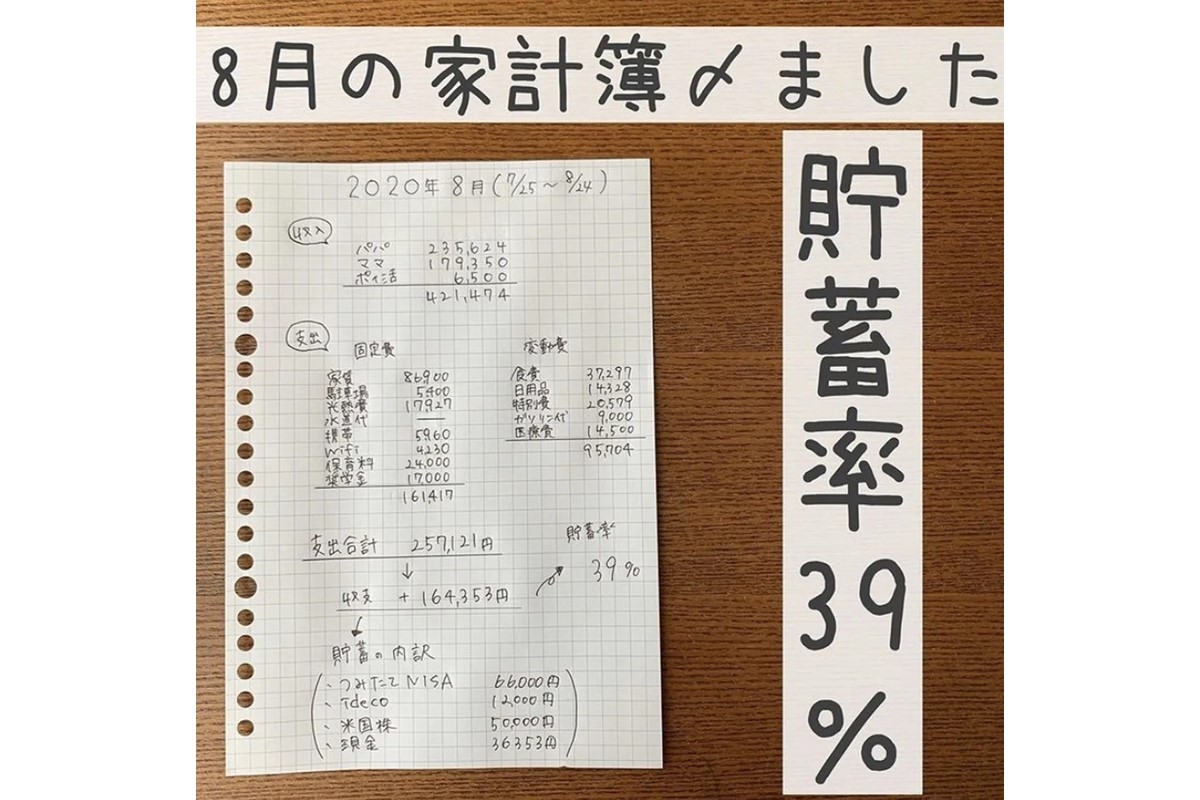 8月の家計簿〆ました
貯蓄率39%
2020年 8月(7/25～8/24)
収入
パパ 235,624
ママ 179,350
ポイ活 6,500
421,474
支出
固定費
家賃 86900
駐車場 5400
光熱費 17927
水道代 ―
携帯 5960
Wifi 4230
保育料 24,000
奨学金 17000
161,417
変動費
食費 37,297
日用品 14,328
特別費 20,579
ガソリン代 9,000
医療費 14,500
95,704
支出合計 257,121円
↓
収支 + 164,353円
貯蓄率
39%
貯蓄の内訳
、つみたてNISA 66,000円
、ideco 12,000円
、米国株 50,000円
、現金 36353円